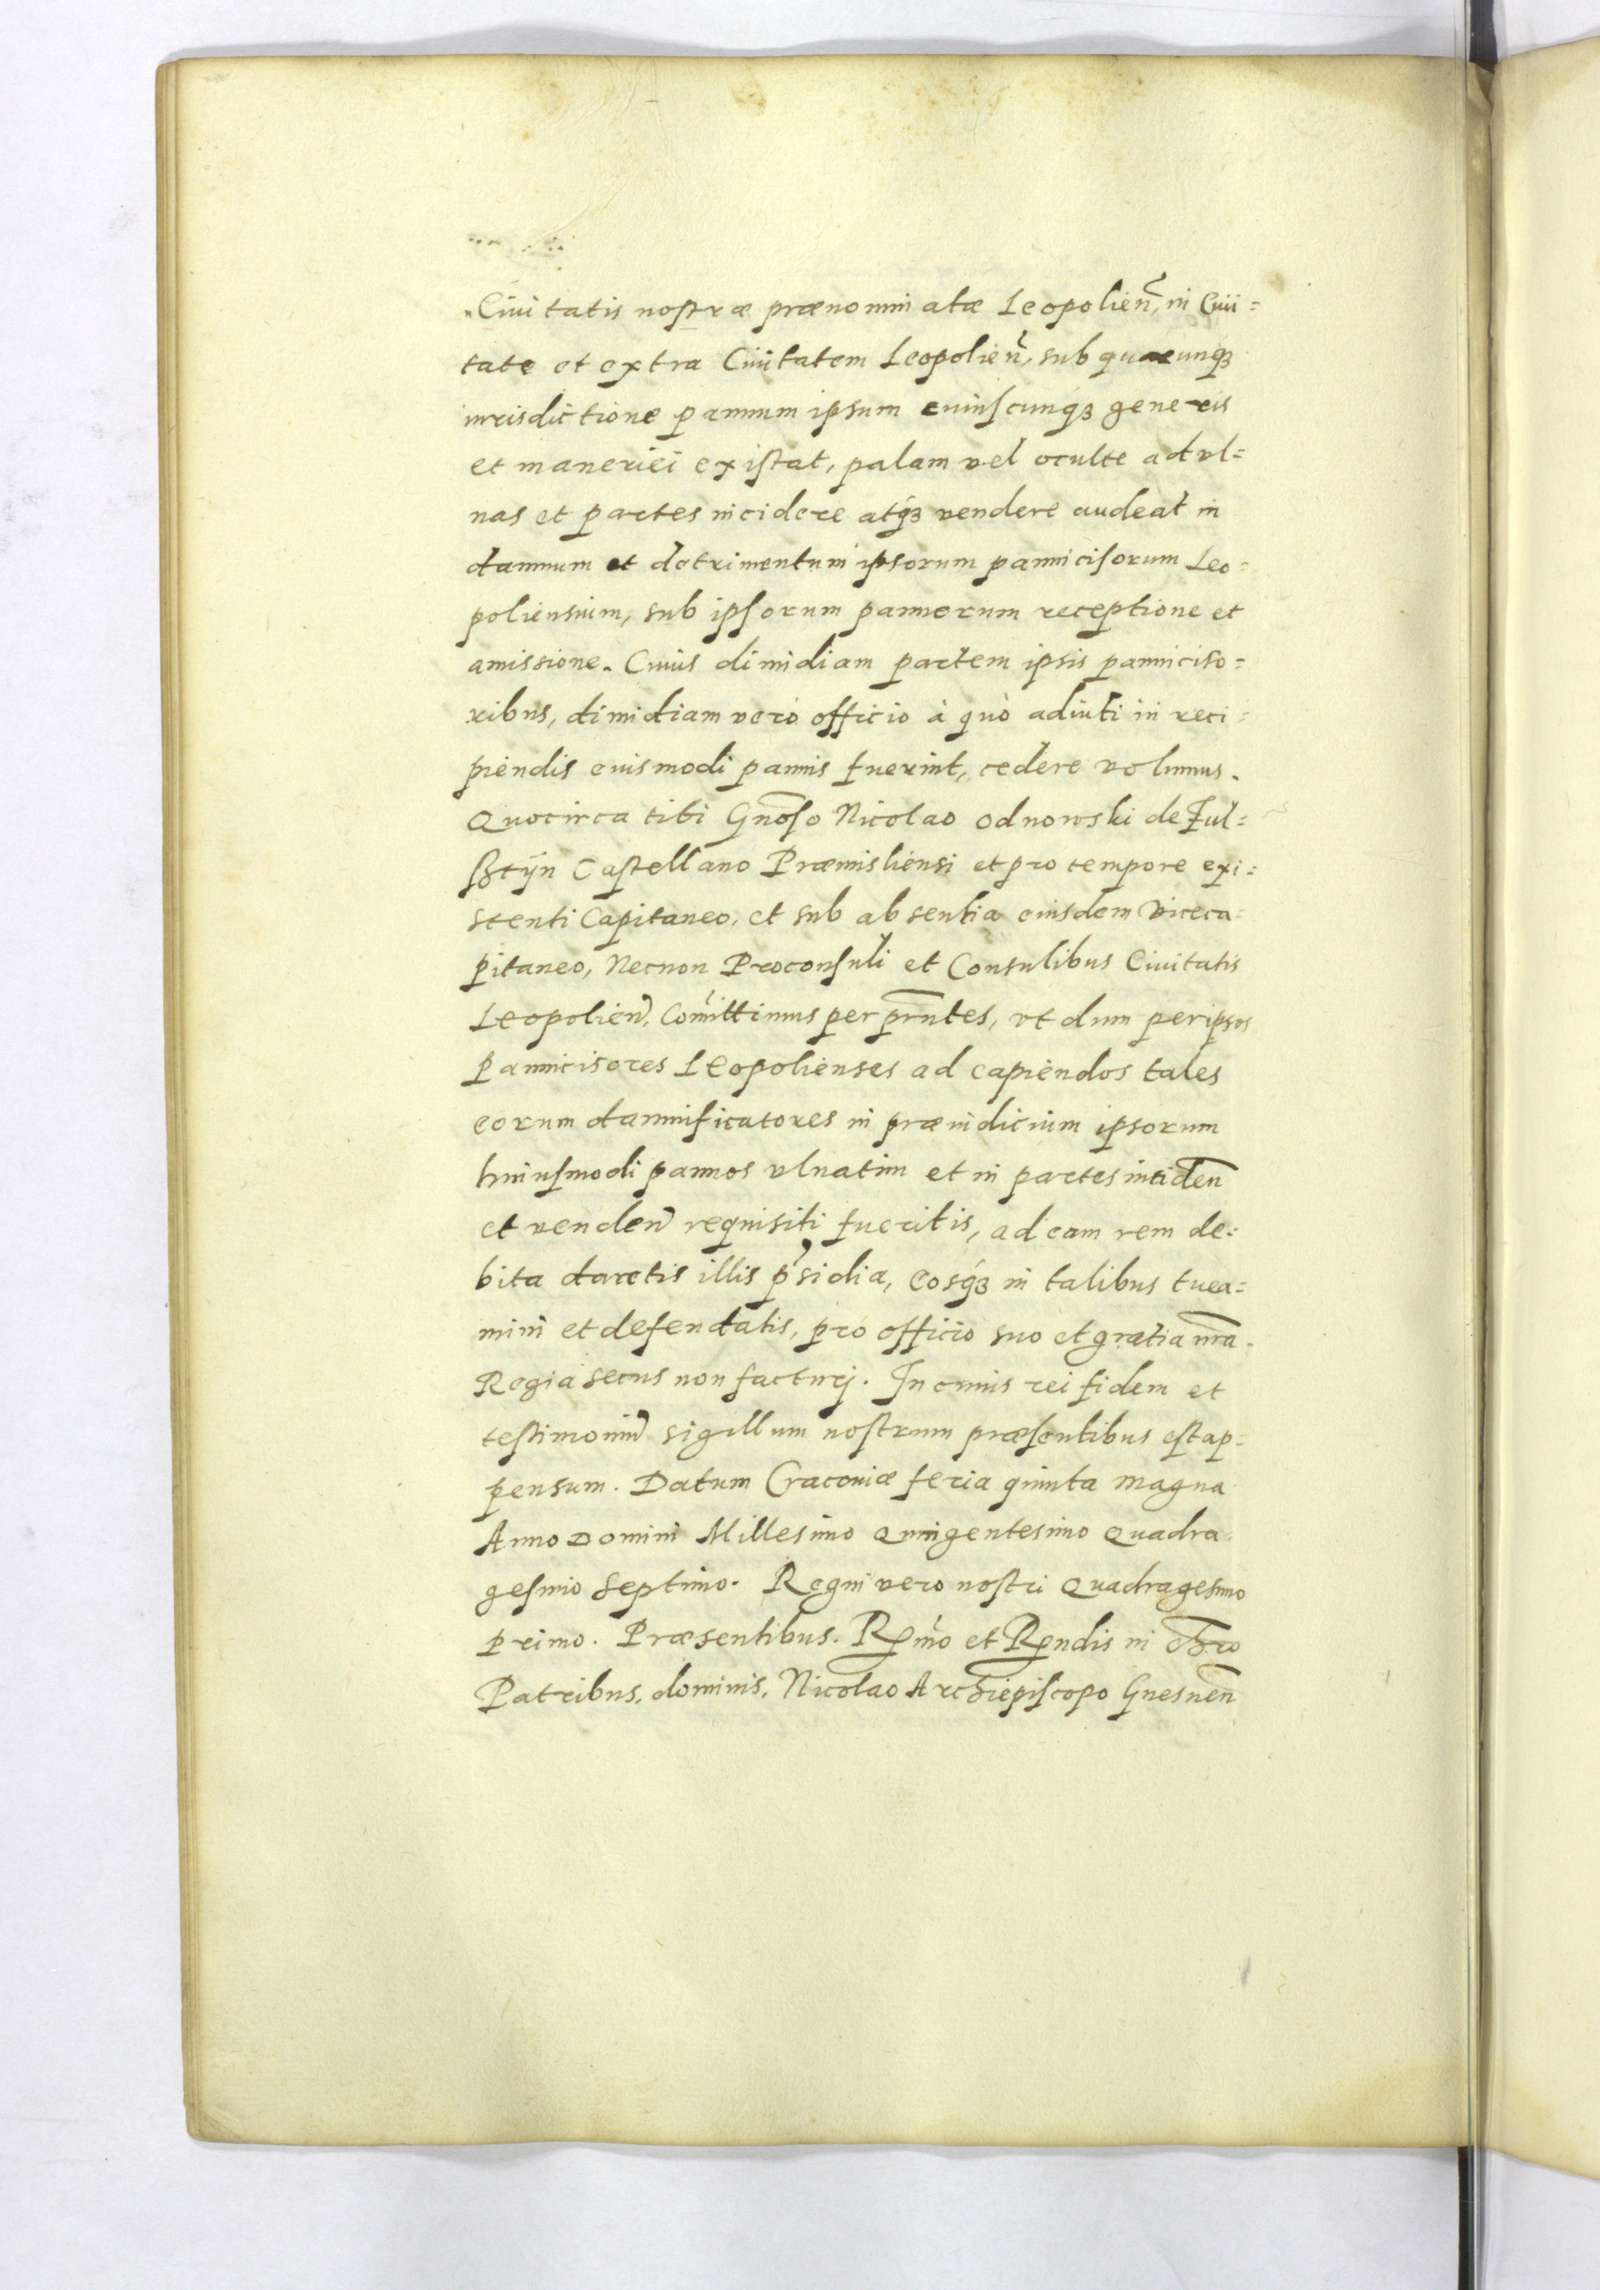 Ciuitatis nostræ prænominatæ Leopolien̄, in Ciui=
tate et extra Ciuitatem Leopolien̄, sub quacunqꝫ
iurisdictione pannum ipsum cuiuscunqꝫ generis
et maneriei existat, palam vel oculte ad vl=
nas et partes incidere atqꝫ vendere audeat in
damnum et detrimentum ipsorum pannicisorum Leo=
poliensium, sub ipsorum pannorum receptione et
amissione. Cuius dimidiam partem ipsis panniciso=
ribus, dimidiam verò officio à quò adiuti in reci=
piendis euismodi pannis fuerint, cedere volumus.
Quocirca tibi Gn̄oso Nicolao Odnowski de Ful=
sztÿn Castellano Præmisliensi et pro tempore exi=
stenti Capitaneo, et sub absentia eiusdem Viceca=
pitaneo, Necnon Proconsuli et Consulibus Ciuitatis
Leopolien̄, Com̄ittimus per pn̄ntes, vt dum per ipsos
Pannicisores Leopolienses ad capiendos tales
eorum damnificatores in præiudicium ipsorum
huiusmodi pannos vlnatim et in partes inciden̄
et venden̄ requisiti fueritis, ad eam rem de=
bita daretis illis p̄sidia, eosqꝫ in talibus tuea=
mini et defendatis, pro officio suo et gratia nr̄a
Regia secus non facturj. In cuius rei fidem et
testimoniū sigillum nostrum præsentibus est ap=
pensum. Datum Cracouiæ feria quinta magna
Anno Domini Millesimo Quingentesimo Quadra
gesimo septimo. Regni vero nostri Quadragesimo
primo. Præsentibus. Rm̄o et Rn̄dis in Chr̄o
Patribus, dominis, Nicolao Archiepiscopo Gnesnen̄